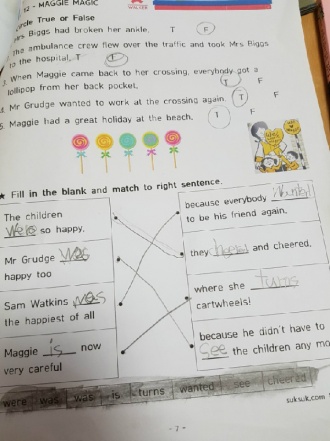 12 - MAGGIE MAGIC
WALKER
rcle True or False
Mrs Biggs had broken her ankle. T F
The ambulance crew flew over the traffic and took Mrs Biggs
to the hospital. T F
When Maggie came back to her crossing, everybody got a
lollipop from her back pocket. T F
Mr Grudge wanted to work at the crossing again. T F
5. Maggie had a great holiday at the beach. T F
★ Fill in the blank and match to right sentence.
The children
were so happy.
Mr Grudge was
happy too
Sam Watkins was
the happiest of all
Maggie is now
very careful
because everybody wanted
to be his friend again.
they cheered and cheered.
where she turns
cartwheels!
because he didn't have to
see the children any mo
were was was is turns wanted see cheered
suksuk.com
- 7 -